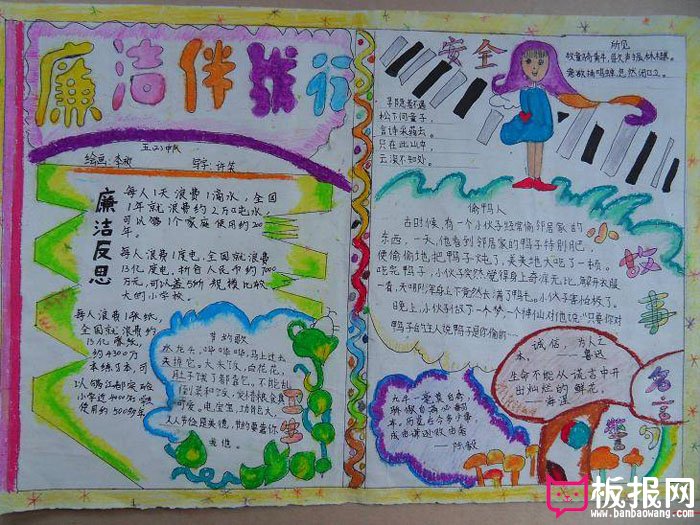 廉洁伴我行
五(2)中队
绘画:李欢 写字:许笑
廉洁反思
每人1天浪费1滴水,全国
1年就浪费约2万吨水,
可以够1个家庭使用约200
年。
每人浪费1度电,全国就浪费
13亿度电,折合人民币约7000
万元,可以盖5所规模比较
大的小学校。
每人浪费1张纸,
全国就浪费约
13亿张纸,
约4300万
本练习本,可
以够江都实验
小学近4000名学
使用约500多年
节约歌
水龙头,哗哗哗,马上过去
关掉它。大米饭,白花花,
肚子饿了都靠它。不能乱
倒菜和饭,爱惜粮食最
可爱。电宝宝,功能大,
人人节俭是美德,节约要靠你
我他。
卫生
安全
所见
牧童骑黄牛,歌声振林樾。
意欲捕鸣蝉,忽然闭口立。
寻隐者不遇
松下问童子,
言师采药去。
只在此山中,
云深不知处。
小故事
偷鸭人
古时候,有一个小伙子经常偷邻居家的
东西,一天,他看到邻居家的鸭子特别肥,
便偷偷地把鸭子炖了,美美地大吃了一顿。
吃完鸭子,小伙子突然觉得身上奇痒无比,解开衣服
一看,天哪!浑身上下竟然长满了鸭毛。小伙子害怕极了。
晚上,小伙子做了一个梦,一个神仙对他说:“只要你对
鸭子的主人说鸭子是你偷的……
名言警句
诚信,为人之
本。——鲁迅
生命不能从谎言中开
出灿烂的鲜花。
——海涅
——陈毅
板报网
www.banbaowang.com